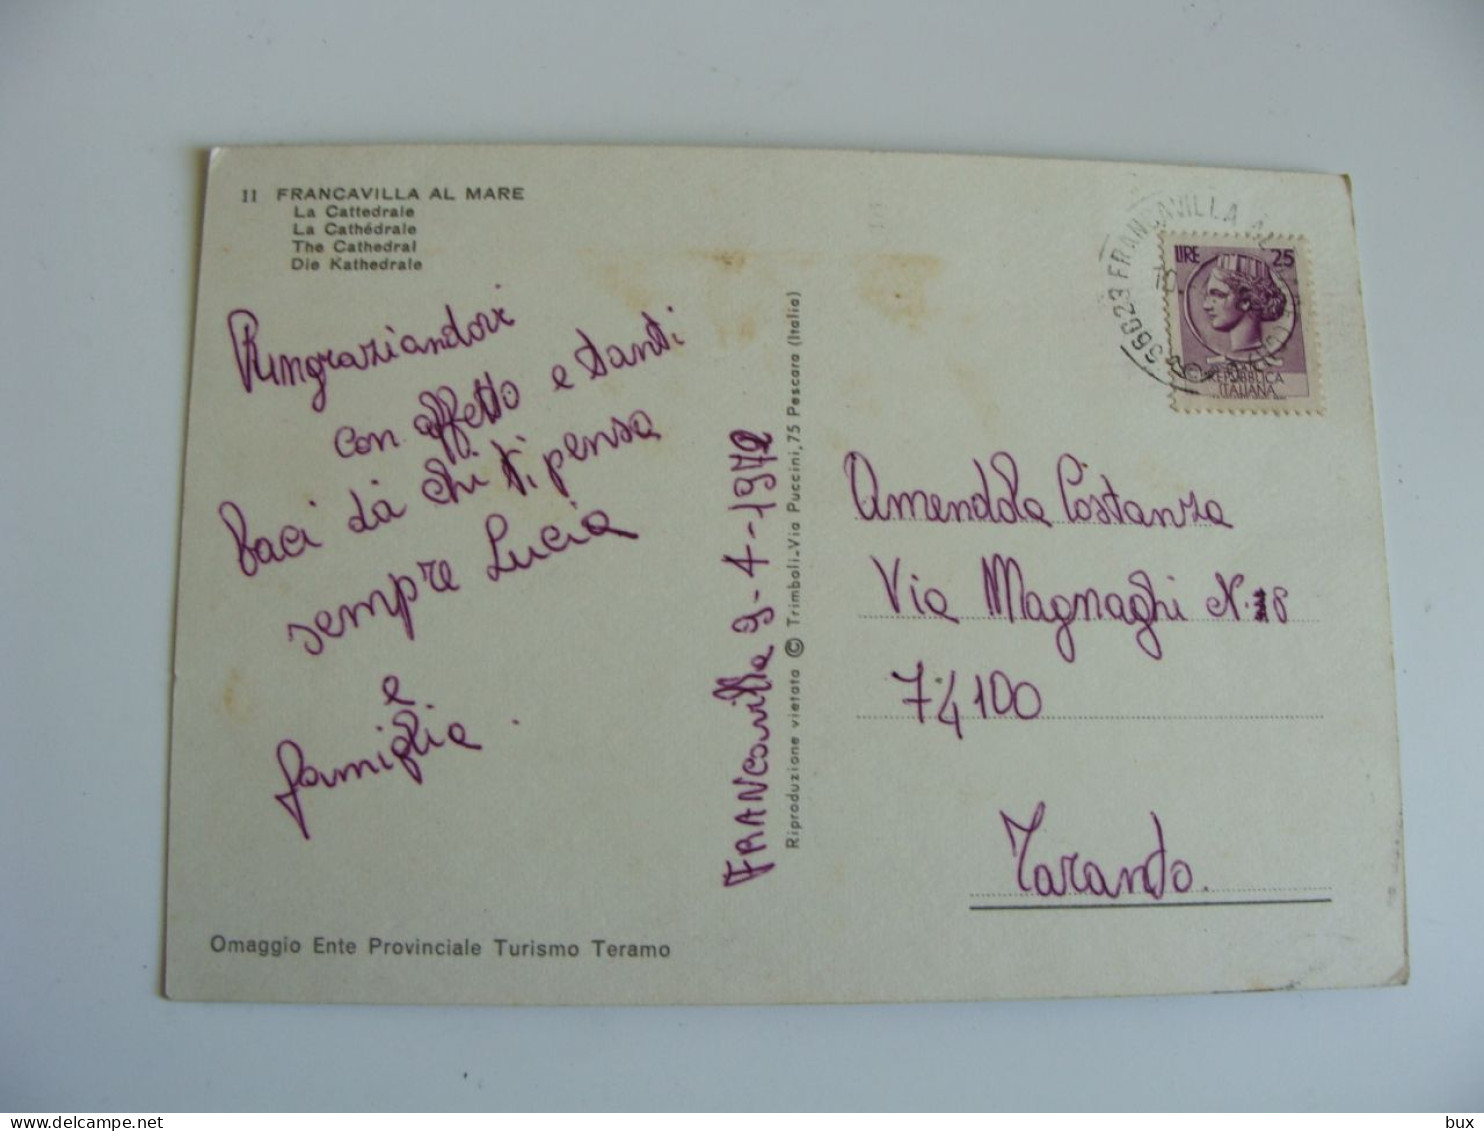 11 FRANCAVILLA AL MARE
La Cattedrale
La Cathédrale
The Cathedral
Die Kathedrale
Ringraziandovi
con affetto e tanti
baci da chi ti pensa
sempre Lucia
e
famiglia.
Omaggio Ente Provinciale Turismo Teramo
FRANCavilla 9-4-1972
Riproduzione vietata © Trimboli-Via Puccini,75 Pescara (Italia)
66023 FRANCAVILLA AL
LIRE 25
REPUBBLICA
ITALIANA
Amendola Costanza
Via Magnaghi N. 18
74100
Taranto.
bux